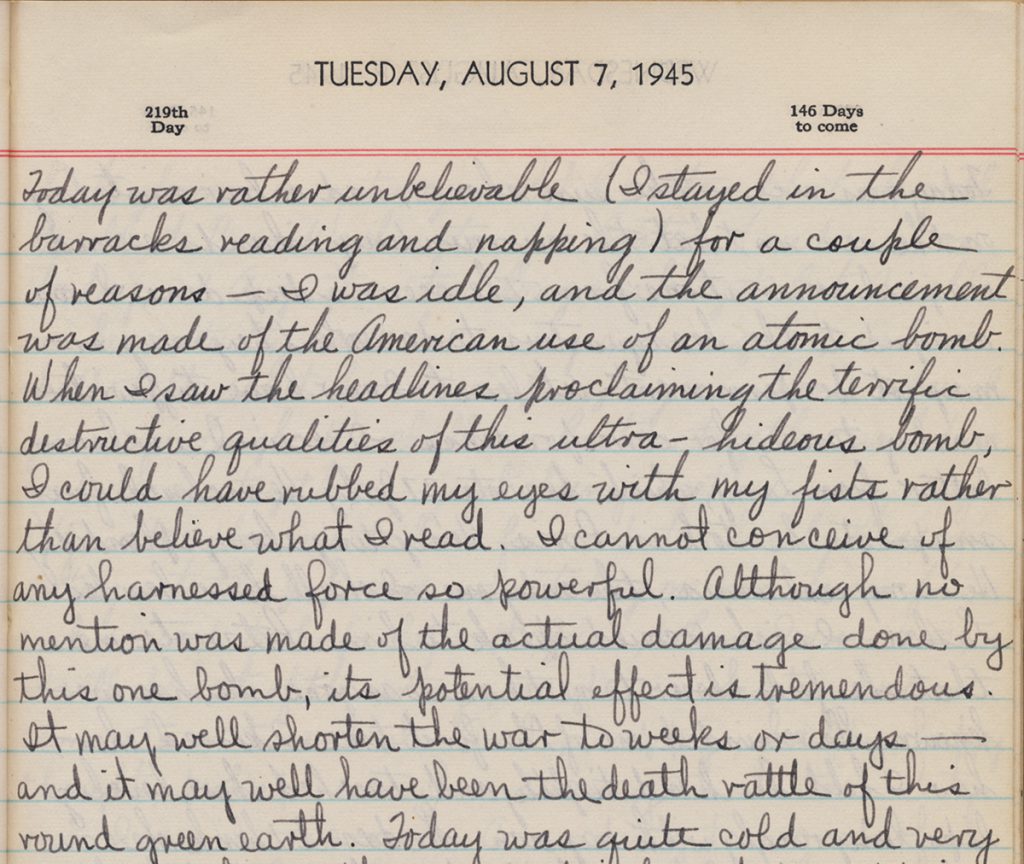 TUESDAY, AUGUST 7, 1945
219th
Day
146 Days
to come
Today was rather unbelievable (I stayed in the
barracks reading and napping) for a couple
of reasons — I was idle, and the announcement
was made of the American use of an atomic bomb.
When I saw the headlines proclaiming the terrific
destructive qualities of this ultra-hideous bomb,
I could have rubbed my eyes with my fists rather
than believe what I read. I cannot conceive of
any harnessed force so powerful. Although no
mention was made of the actual damage done by
this one bomb, its potential effect is tremendous.
It may well shorten the war to weeks or days —
and it may well have been the death rattle of this
round green earth. Today was quite cold and very